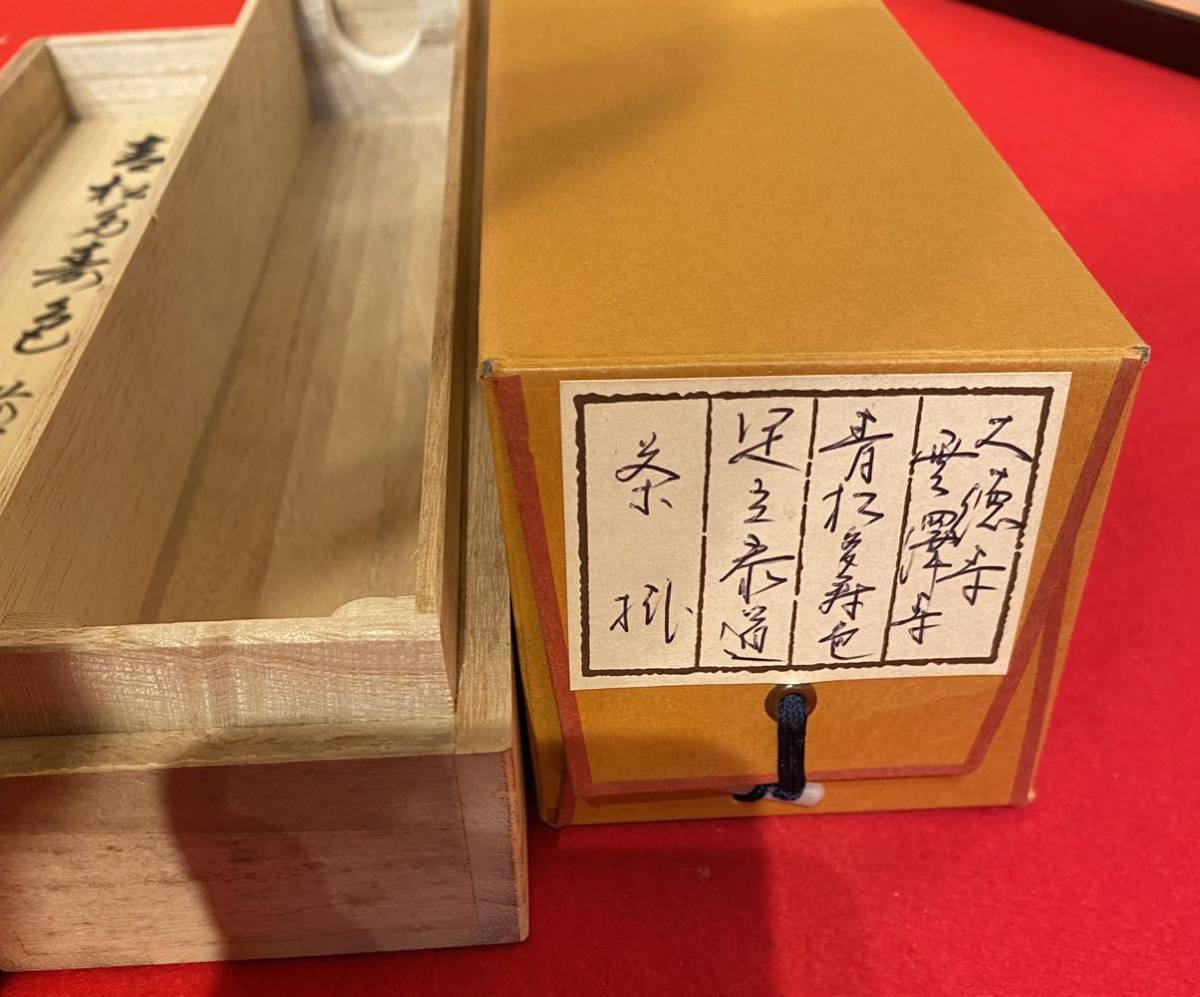 大徳寺
雲澤寺
青松多寿色
足立泰道
茶掛
青松多寿色